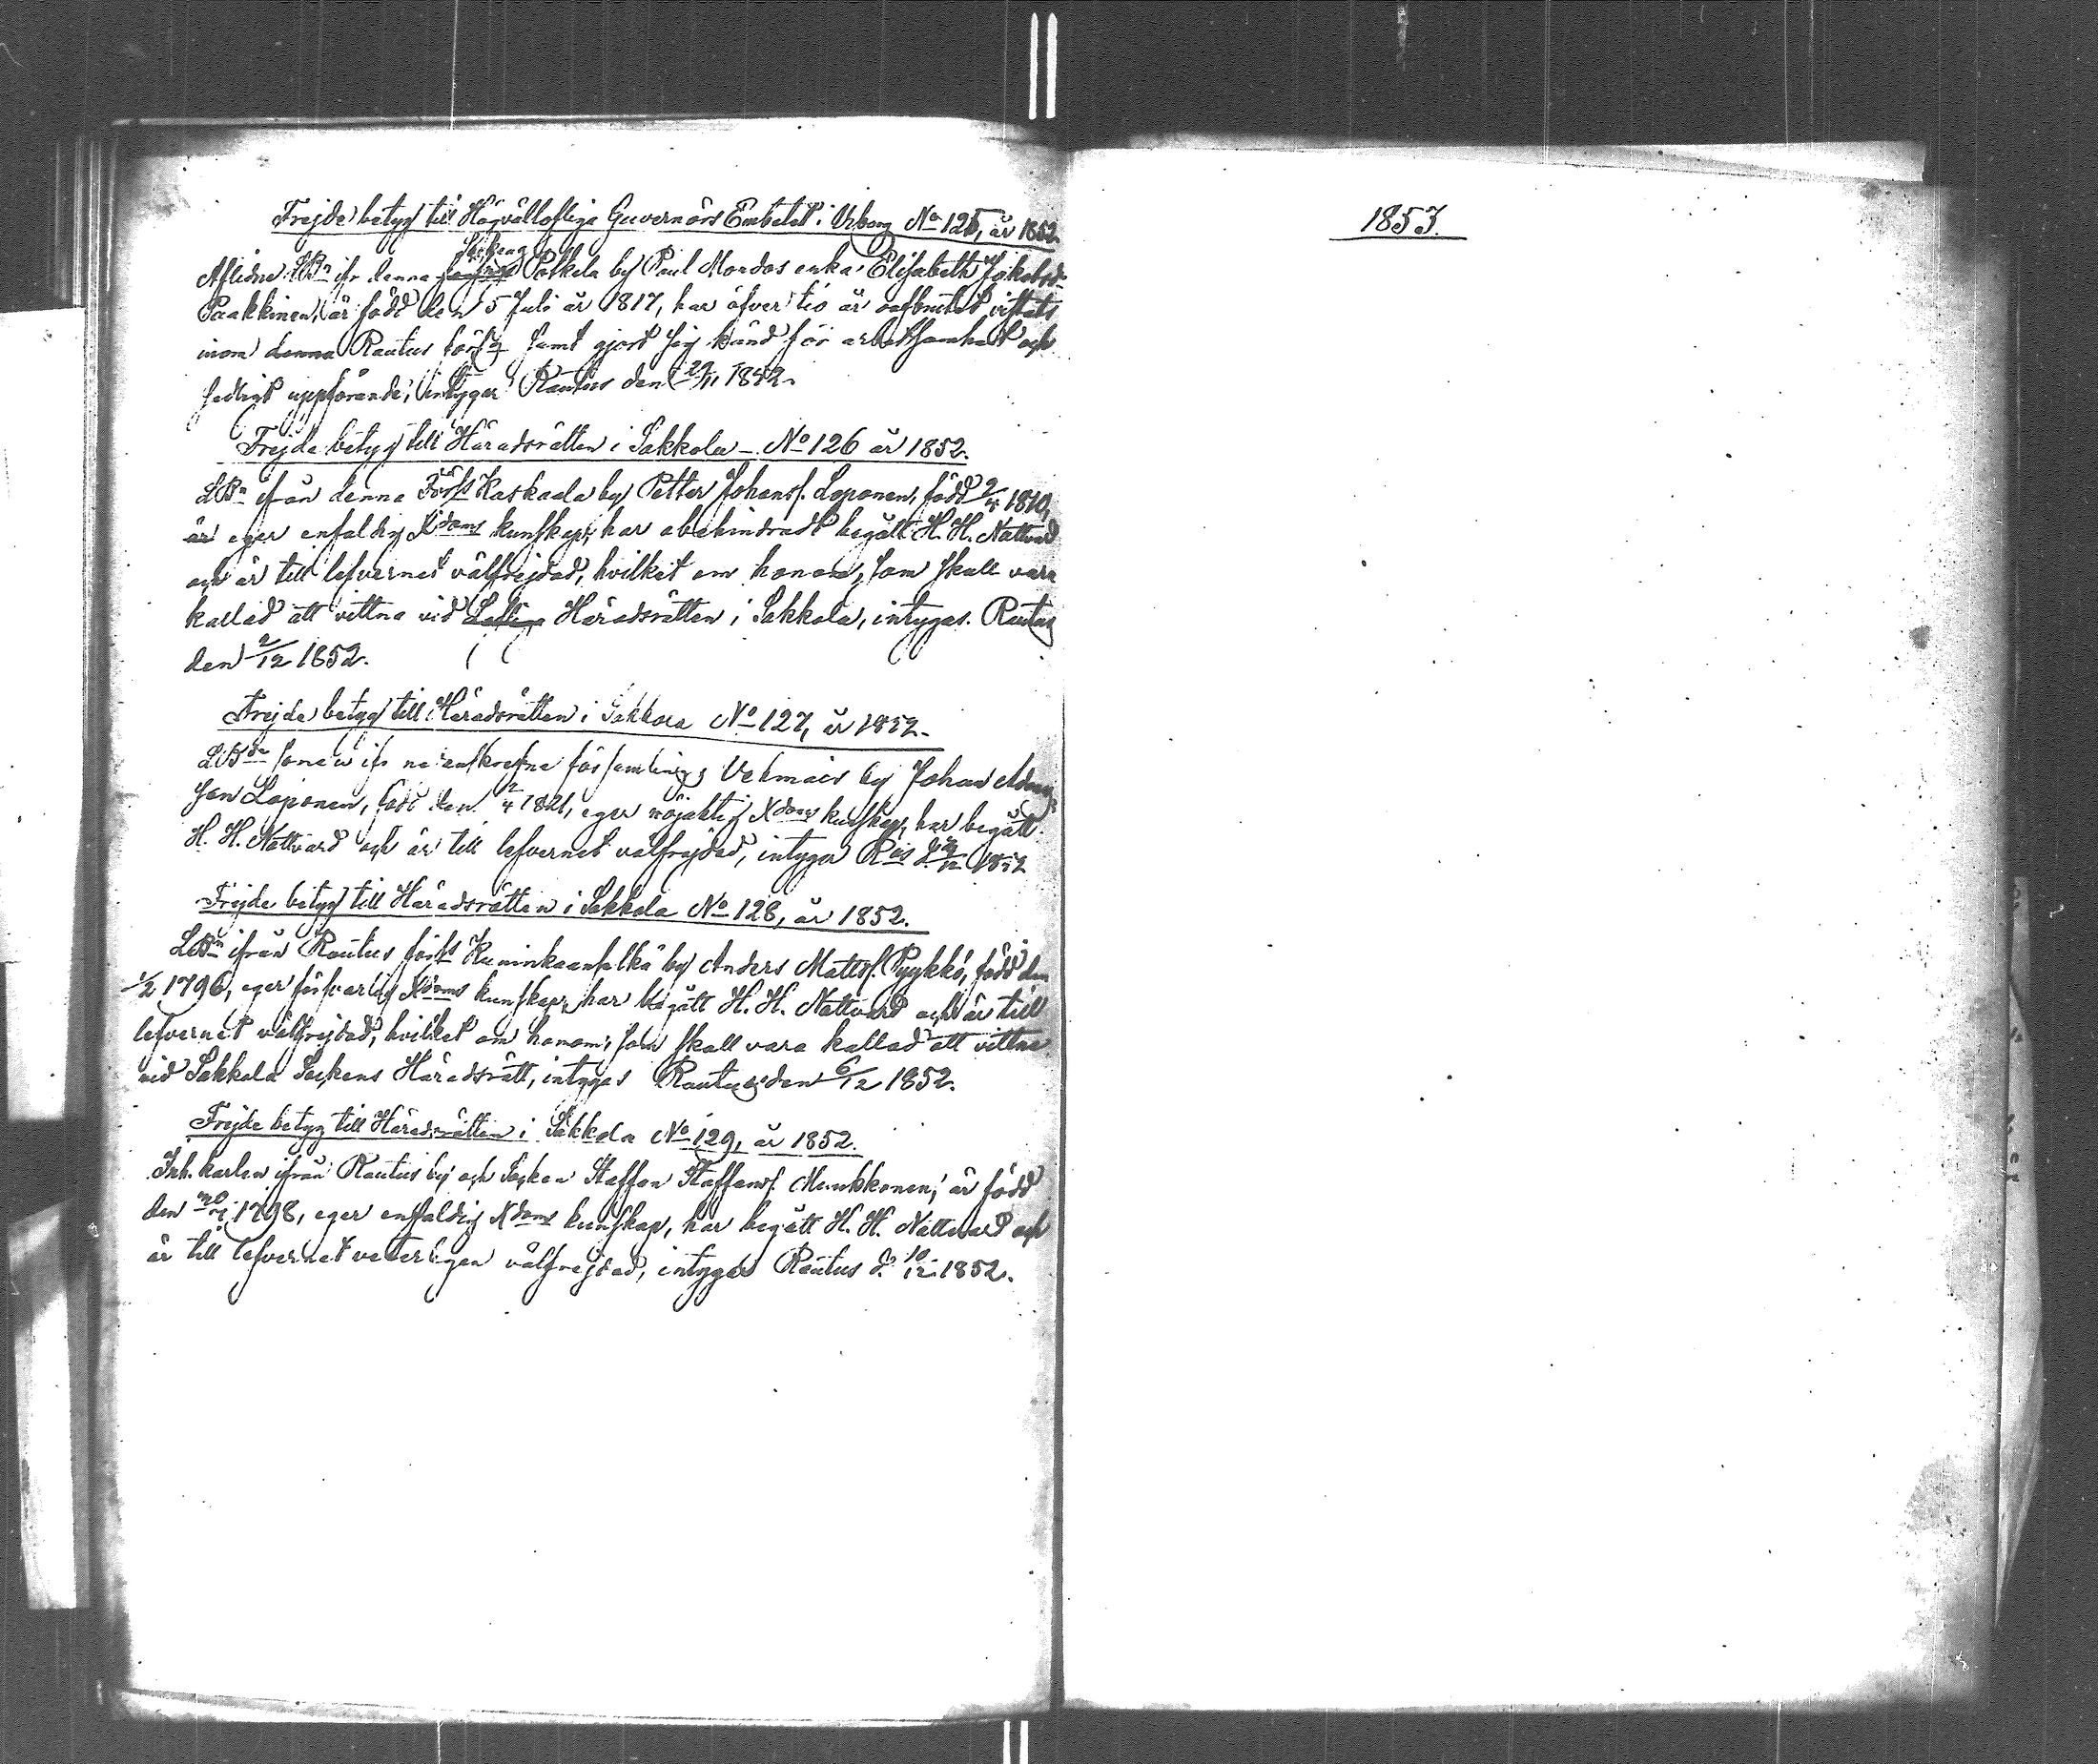 Frejde betyg till Högvällofliga Guvernörs Embetet i Wiborg No 125, år 1852.
Sockens
Aflidne LBn ifr denna Palkela by Paul Mordos enka Elisabeth Jakobsd.
Paakkinen, är född den 5 Juli år 1817, har öfver tio år oafbrutet vistats
inom denna Rautus förs:g samt gjort sig känd för arbetsamhet och
sedligt uppförande, intygar Rautus den 29/11 1852.
Frejde betyg till Häradsrätten i Sakkola – No 126 år 1852.
LBn ifrån denna Förs:s Raskaala by Petter Johanss. Loponen, född 2/4 1810,
är eger enfaldig Xdoms kunskap, har obehindradt begått H. H. Nattvard
och är till lefvernet välfrejdad, hvilket om honom, som skall vara
kallad att vittna vid Lofliga Häradsrätten i Sakkola, intygas. Rautus
den 2/12 1852.
Frejde betyg till Häradsrätten i Sakkola No 127, år 1852.
LBde sonen ifr församlings Vehmais by Johan Adams
son Loponen, född den 2/4 1821, eger nöjaktig Xdoms kunskap, har begått
H. H. Nattvard och är till lefvernet välfrejdad, intygar Rus d. 1852
Frejde betyg till Häradsrätten i Sakkola No 128, år 1852.
LBn ifrån Rautus förs:s Kuninkaanselkä by Anders Mattss. Pyykkö, född den
1/2 1796, eger försvarlig Xdoms kunskap, har begått H. H. Nattvard och är till
lefvernet välfrejdad, hvilket om honom, som skall vara kallad att vittna
vid Sakkola Sockens Häradsrätt, intygas Rautus den 6/12 1852.
Frejde betyg till Häradsrätten i Sakkola No 129, år 1852.
Inh. karlen ifrån Rautus by och Socken Staffan Staffanss. Munkkonen, är född
den 1798, eger enfaldig Xdoms kunskap, har begått H. H. Nattvard och
är till lefvernet veterligen välfrejdad, intygas Rautus d. 10/12 1852.
1853.